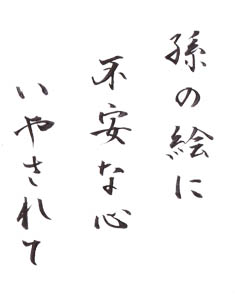 孫の絵に
不安な心
いやされて